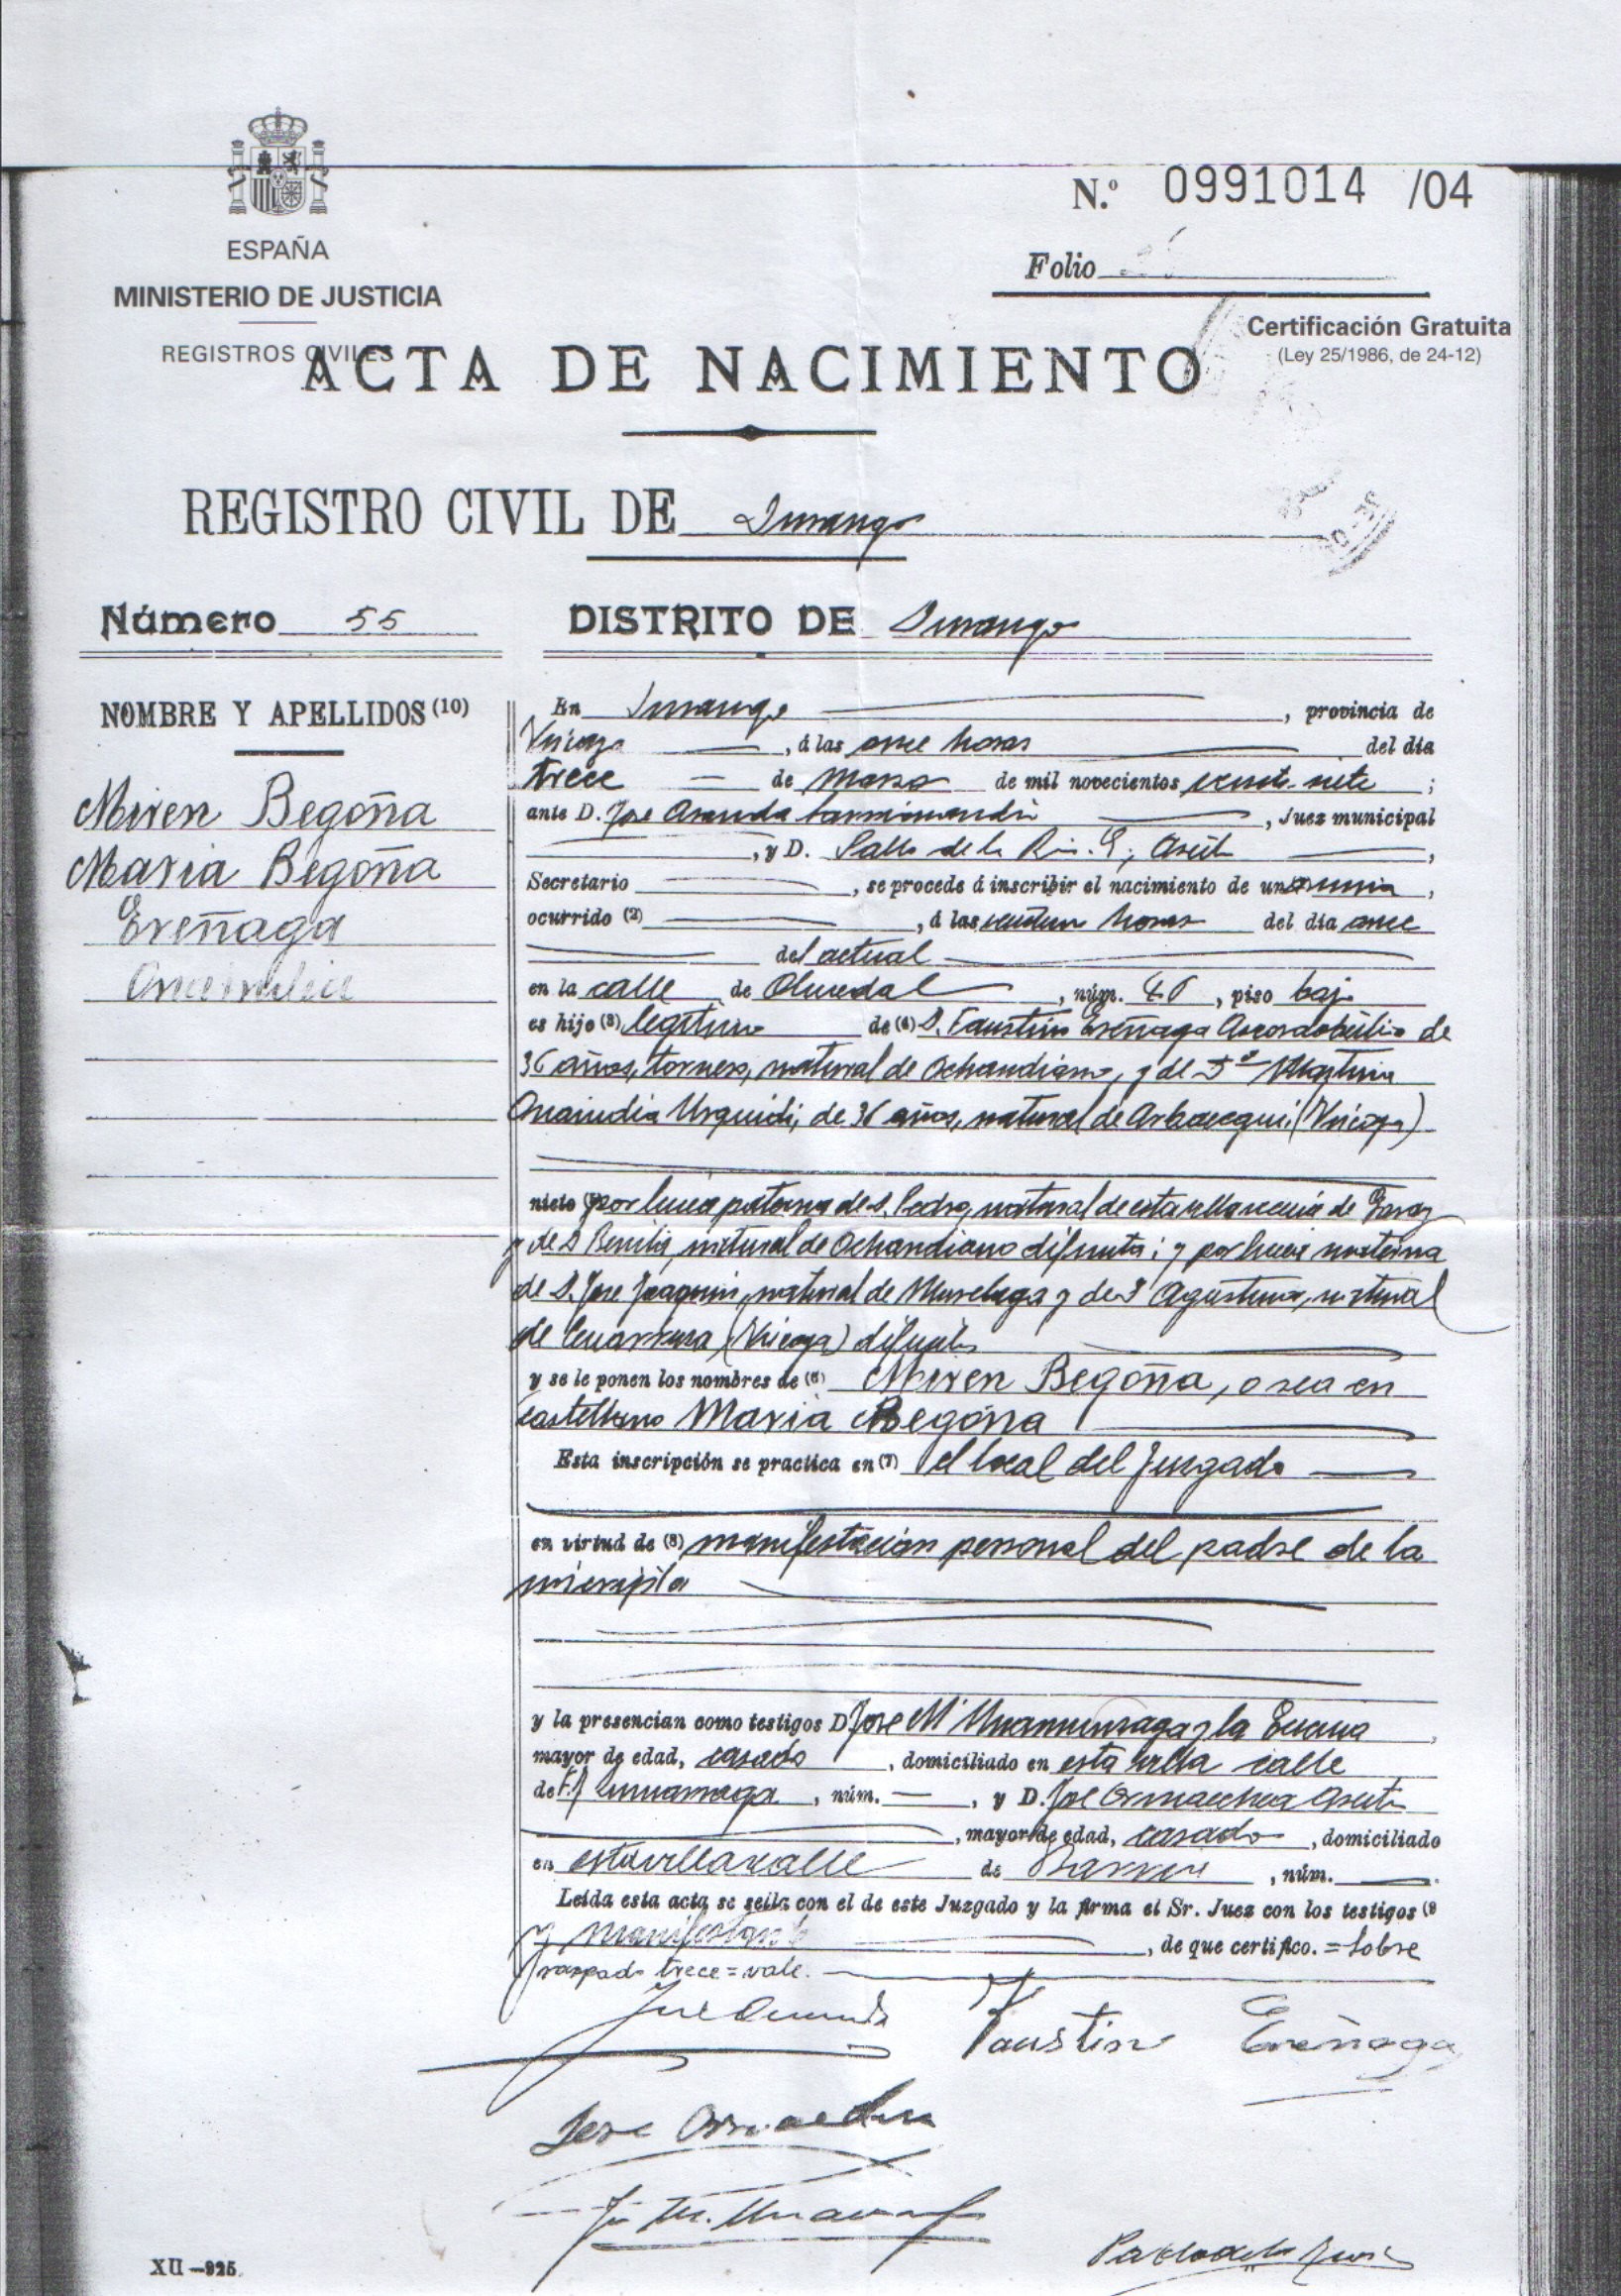 N.º 0991014 /04
ESPAÑA
MINISTERIO DE JUSTICIA
REGISTROS CIVILES
Folio
Certificación Gratuita
(Ley 25/1986, de 24-12)
ACTA DE NACIMIENTO
REGISTRO CIVIL DE Durango
Número 55
DISTRITO DE Durango
NOMBRE Y APELLIDOS (10)
Miren Begoña
Maria Begoña
Ereñaga
En Durango, provincia de
Vizcaya, á las once horas del día
trece de Marzo de mil novecientos veinte-siete;
ante D. Jose Aranda, Juez municipal
, y D. Pablo de la
Secretario, se procede á inscribir el nacimiento de una
ocurrido (2), á las veintiun horas del día once
del actual
en la calle de Olmedal, núm. 46, piso bajo
es hijo (3) legitimo de (4) D. Faustin Ereñaga de
36 años, tornero, natural de Ochandiano, y de Dª Martina
Urquidi, de 36 años, natural de Arbacegui (Vizcaya)
nieto (5) por linea paterna de D. Pedro, natural de esta villa de
y de Dª Benita, natural de Ochandiano difunta; y por linea materna
de D. Jose Joaquin, natural de Murelaga y de Dª Agustina, natural
de Cenarruza (Vizcaya) difuntos
y se le ponen los nombres de (6) Miren Begoña, o sea en
castellano Maria Begoña
Esta inscripción se practica en (7) el local del Juzgado
en virtud de (8) manifestacion personal del padre de la
inscripta
y la presencian como testigos D. Jose Mª Unamunzaga y la
mayor de edad, casado, domiciliado en esta villa calle
de F. J. Zumarraga, núm. —, y D. Jose Ormaechea
, mayor de edad, casado, domiciliado
en esta villa calle de Barria, núm. —.
Leída esta acta se sella con el de este Juzgado y la firma el Sr. Juez con los testigos (9
y manifestante, de que certifico. = Sobre
raspado trece = vale.
Jose Aranda Faustin Ereñaga
Jose Ormaechea
XII—925